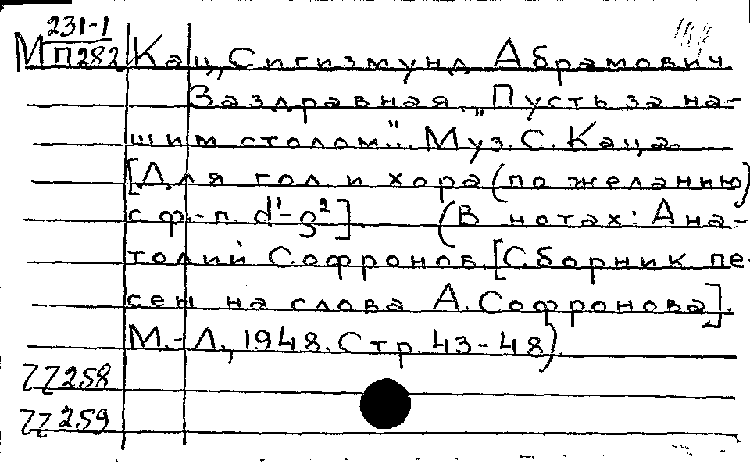 231-1
М П282 Кац, Сигизмунд Абрамович
Заздравная. "Пусть за на-
шим столом". Муз. С. Каца.
[Для гол. и хора (по желанию)
с ф.-п. d¹-g²] (В нотах: Ана-
толий Софронов. [Сборник пе-
сен на слова А. Софронова].
М.-Л., 1948. Стр. 43-48)
ZZ258
ZZ259